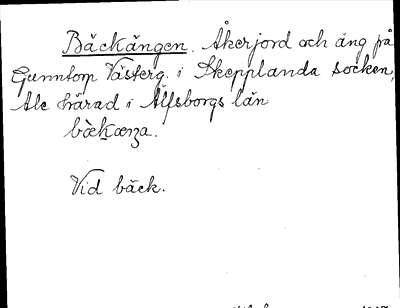 Bäckängen. Åkerjord och äng på
Gunntorp Västerg. i Skepplanda socken,
Ale härad i Älfsborgs län
bækæŋa.
Vid bäck.